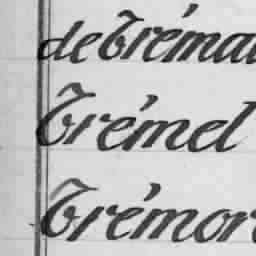 de Trémau
Trémel
Trémor